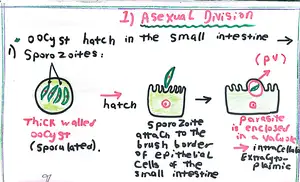 1) Asexual Division
* oocyst hatch in the small intestine →
1) Sporozoites:
(PV)
hatch
Thick walled
oocyst
(sporulated).
Sporozoite
attach to the
brush border
of epithelial
cells of the
small intestine
Parasite
is enclosed
in a vacuole
→ intracellular
Extracyto-
plasmic